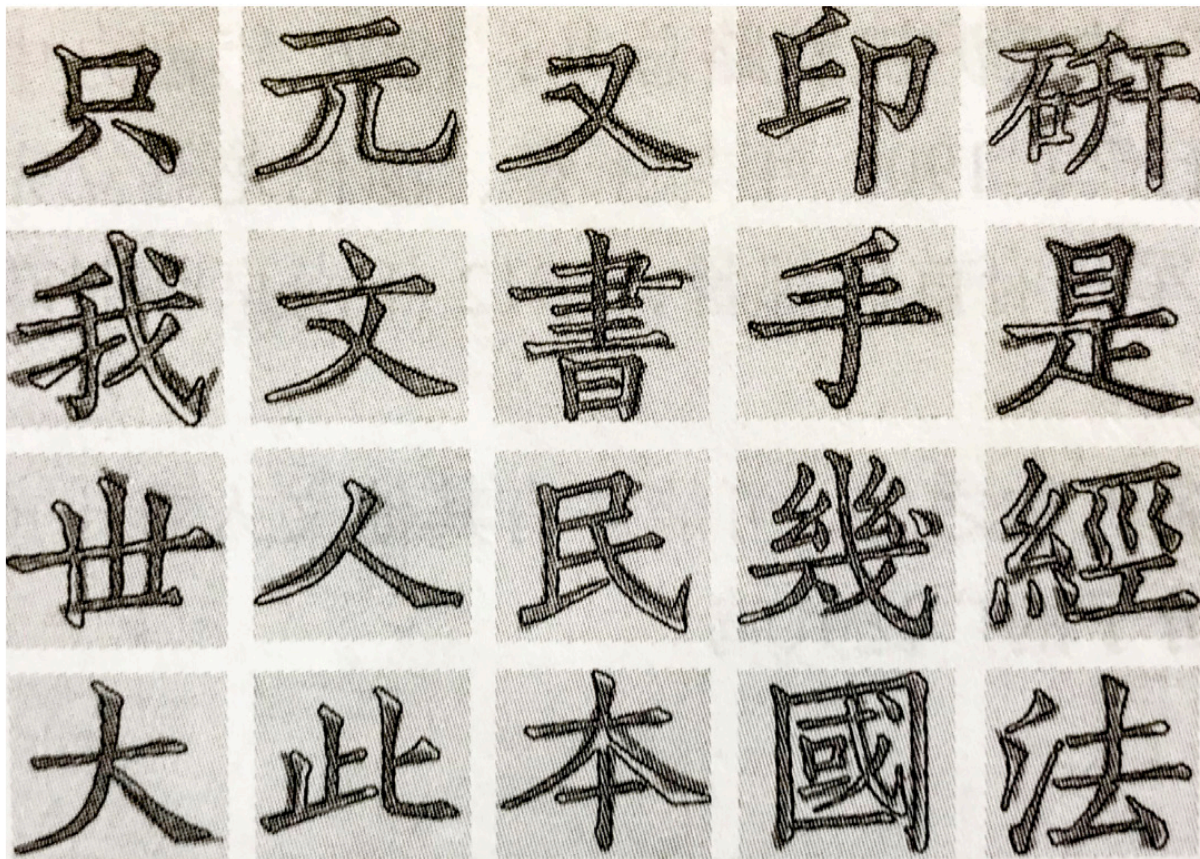 只元又印硏
我文書手是
丗人民幾經
大此本國法